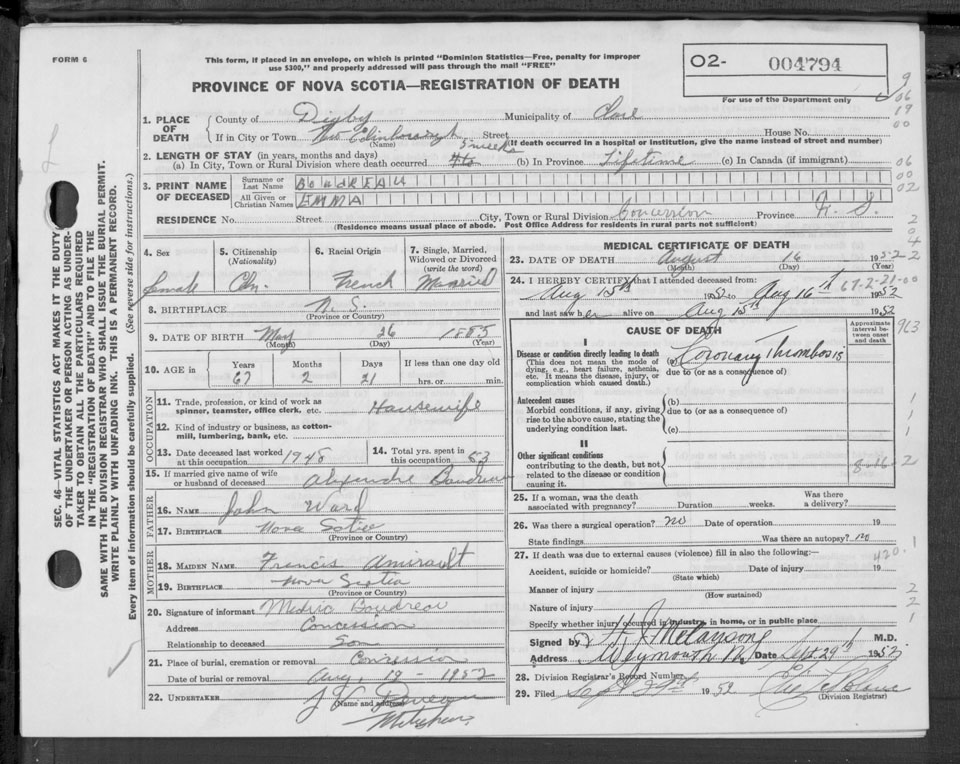 FORM 6
This form, if placed in an envelope, on which is printed "Dominion Statistics—Free, penalty for improper
use $300," and properly addressed will pass through the mail "FREE"
O2- 004794
For use of the Department only
PROVINCE OF NOVA SCOTIA—REGISTRATION OF DEATH
1. PLACE OF DEATH
County of Digby Municipality of Clare
If in City or Town New Edinborough Street House No.
(Name) (If death occurred in a hospital or institution, give the name instead of street and number)
2. LENGTH OF STAY (in years, months and days)
(a) In City, Town or Rural Division where death occurred 3 weeks (b) In Province Lifetime (c) In Canada (if immigrant)
3. PRINT NAME OF DECEASED
Surname or Last Name BOUDREAU
All Given or Christian Names EMMA
RESIDENCE No. Street City, Town or Rural Division Concession Province N. S.
(Residence means usual place of abode. Post Office Address for residents in rural parts not sufficient)
4. Sex
female
5. Citizenship (Nationality)
Cdn.
6. Racial Origin
French
7. Single, Married, Widowed or Divorced (write the word)
Married
8. BIRTHPLACE N. S.
(Province or Country)
9. DATE OF BIRTH May 26 1885
(Month) (Day) (Year)
10. AGE in Years Months Days If less than one day old
67 2 21 hrs. or min.
OCCUPATION
11. Trade, profession, or kind of work as
spinner, teamster, office clerk, etc. Housewife
12. Kind of industry or business, as cotton-
mill, lumbering, bank, etc.
13. Date deceased last worked at this occupation 1948
14. Total yrs. spent in this occupation
15. If married give name of wife
or husband of deceased Alexandre Boudreau
FATHER
16. NAME John Ward
17. BIRTHPLACE Nova Scotia
(Province or Country)
MOTHER
18. MAIDEN NAME Francis Amirault
19. BIRTHPLACE Nova Scotia
(Province or Country)
20. Signature of informant Boudreau
Address Concession
Relationship to deceased Son
21. Place of burial, cremation or removal Concession
Date of burial or removal Aug. 18 - 1952
22. UNDERTAKER
(Name and address)
MEDICAL CERTIFICATE OF DEATH
23. DATE OF DEATH August 16 1952
(Month) (Day) (Year)
24. I HEREBY CERTIFY that I attended deceased from:
Aug 15th 1952 to Aug 16th 1952
and last saw her alive on Aug 15th 1952
CAUSE OF DEATH
Approximate interval between onset and death
I
Disease or condition directly leading to death
(This does not mean the mode of
dying, e.g., heart failure, asthenia,
etc. It means the disease, injury, or
complication which caused death.)
(a) Coronary Thrombosis
due to (or as a consequence of)
Antecedent causes
Morbid conditions, if any, giving
rise to the above cause, stating the
underlying condition last.
(b)
due to (or as a consequence of)
(c)
II
Other significant conditions
contributing to the death, but not
related to the disease or condition
causing it.
25. If a woman, was the death
associated with pregnancy? Duration weeks. Was there a delivery?
26. Was there a surgical operation? no Date of operation 19
State findings Was there an autopsy? no
27. If death was due to external causes (violence) fill in also the following:—
Accident, suicide or homicide? Date of injury 19
(State which)
Manner of injury
(How sustained)
Nature of injury
Specify whether injury occurred in industry, in home, or in public place
Signed by Melanson M.D.
Address Weymouth N. Date Sept. 29th 1952
28. Division Registrar's Record Number
29. Filed Sept 1952
(Division Registrar)
SEC. 46—VITAL STATISTICS ACT MAKES IT THE DUTY
OF THE UNDERTAKER OR PERSON ACTING AS UNDER-
TAKER TO OBTAIN ALL THE PARTICULARS REQUIRED
IN THE "REGISTRATION OF DEATH" AND TO FILE THE
SAME WITH THE DIVISION REGISTRAR WHO SHALL ISSUE THE BURIAL PERMIT.
WRITE PLAINLY WITH UNFADING INK. THIS IS A PERMANENT RECORD.
Every item of information should be carefully supplied. (See reverse side for instructions.)